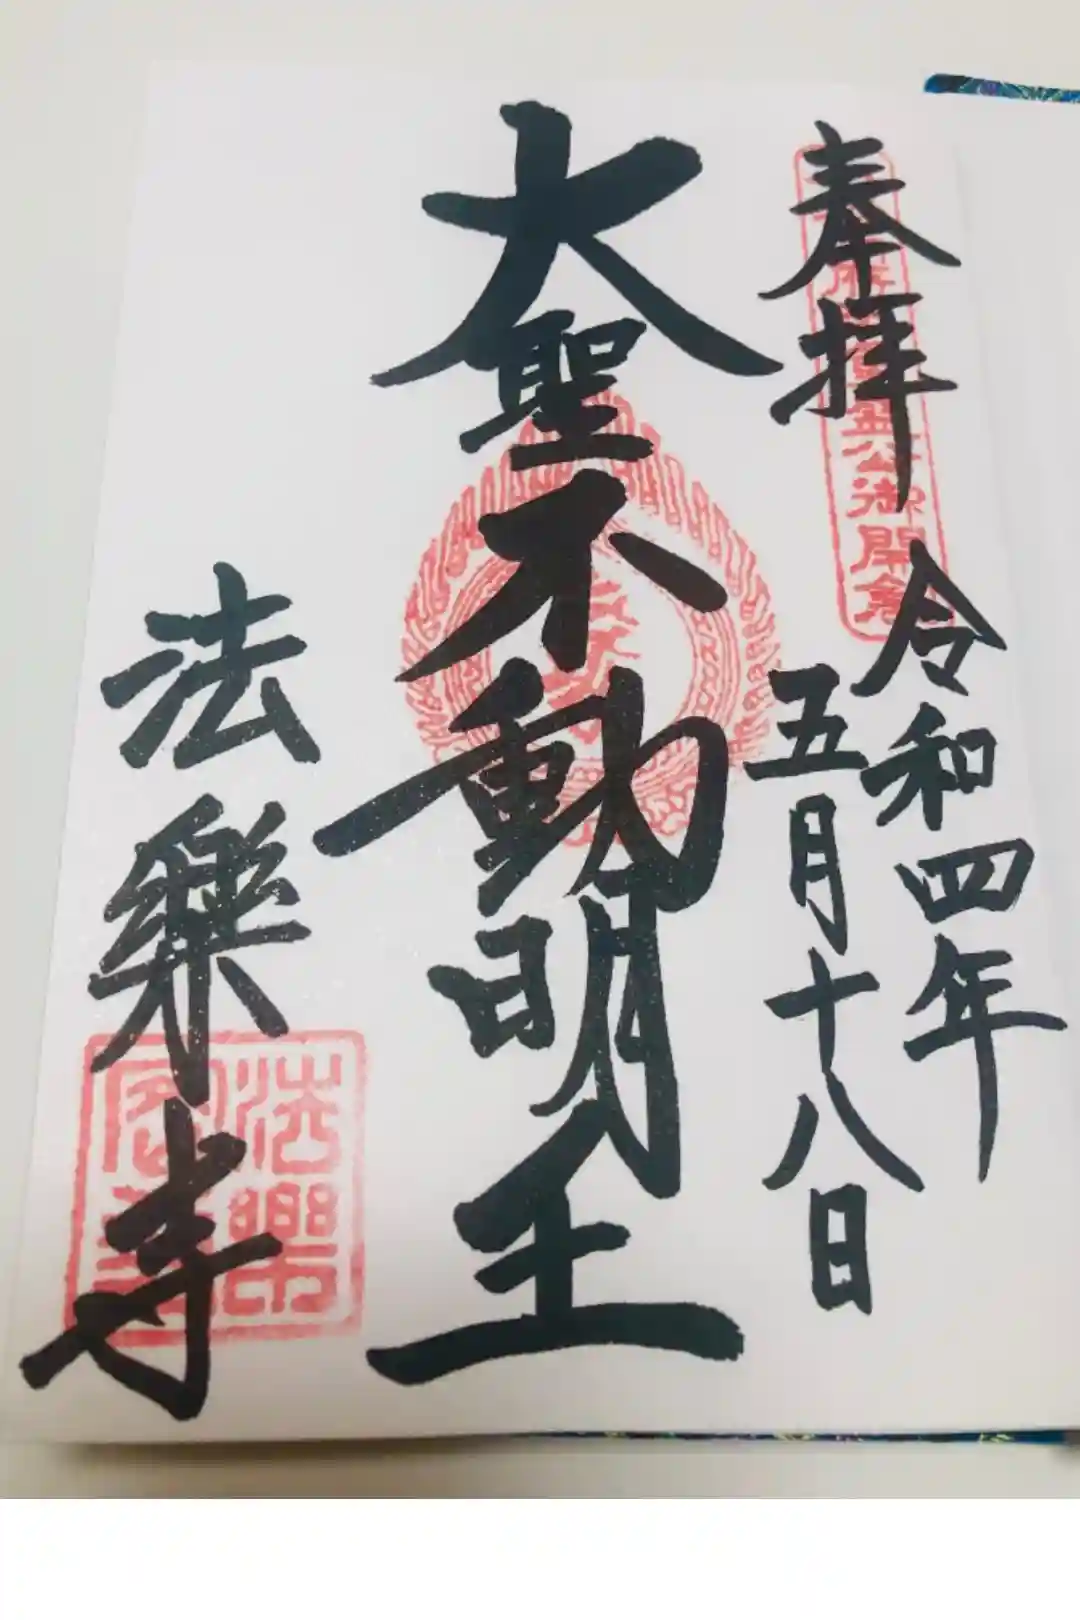 奉拝
令和四年
五月十八日
大聖不動明王
法樂寺
御開創
法樂